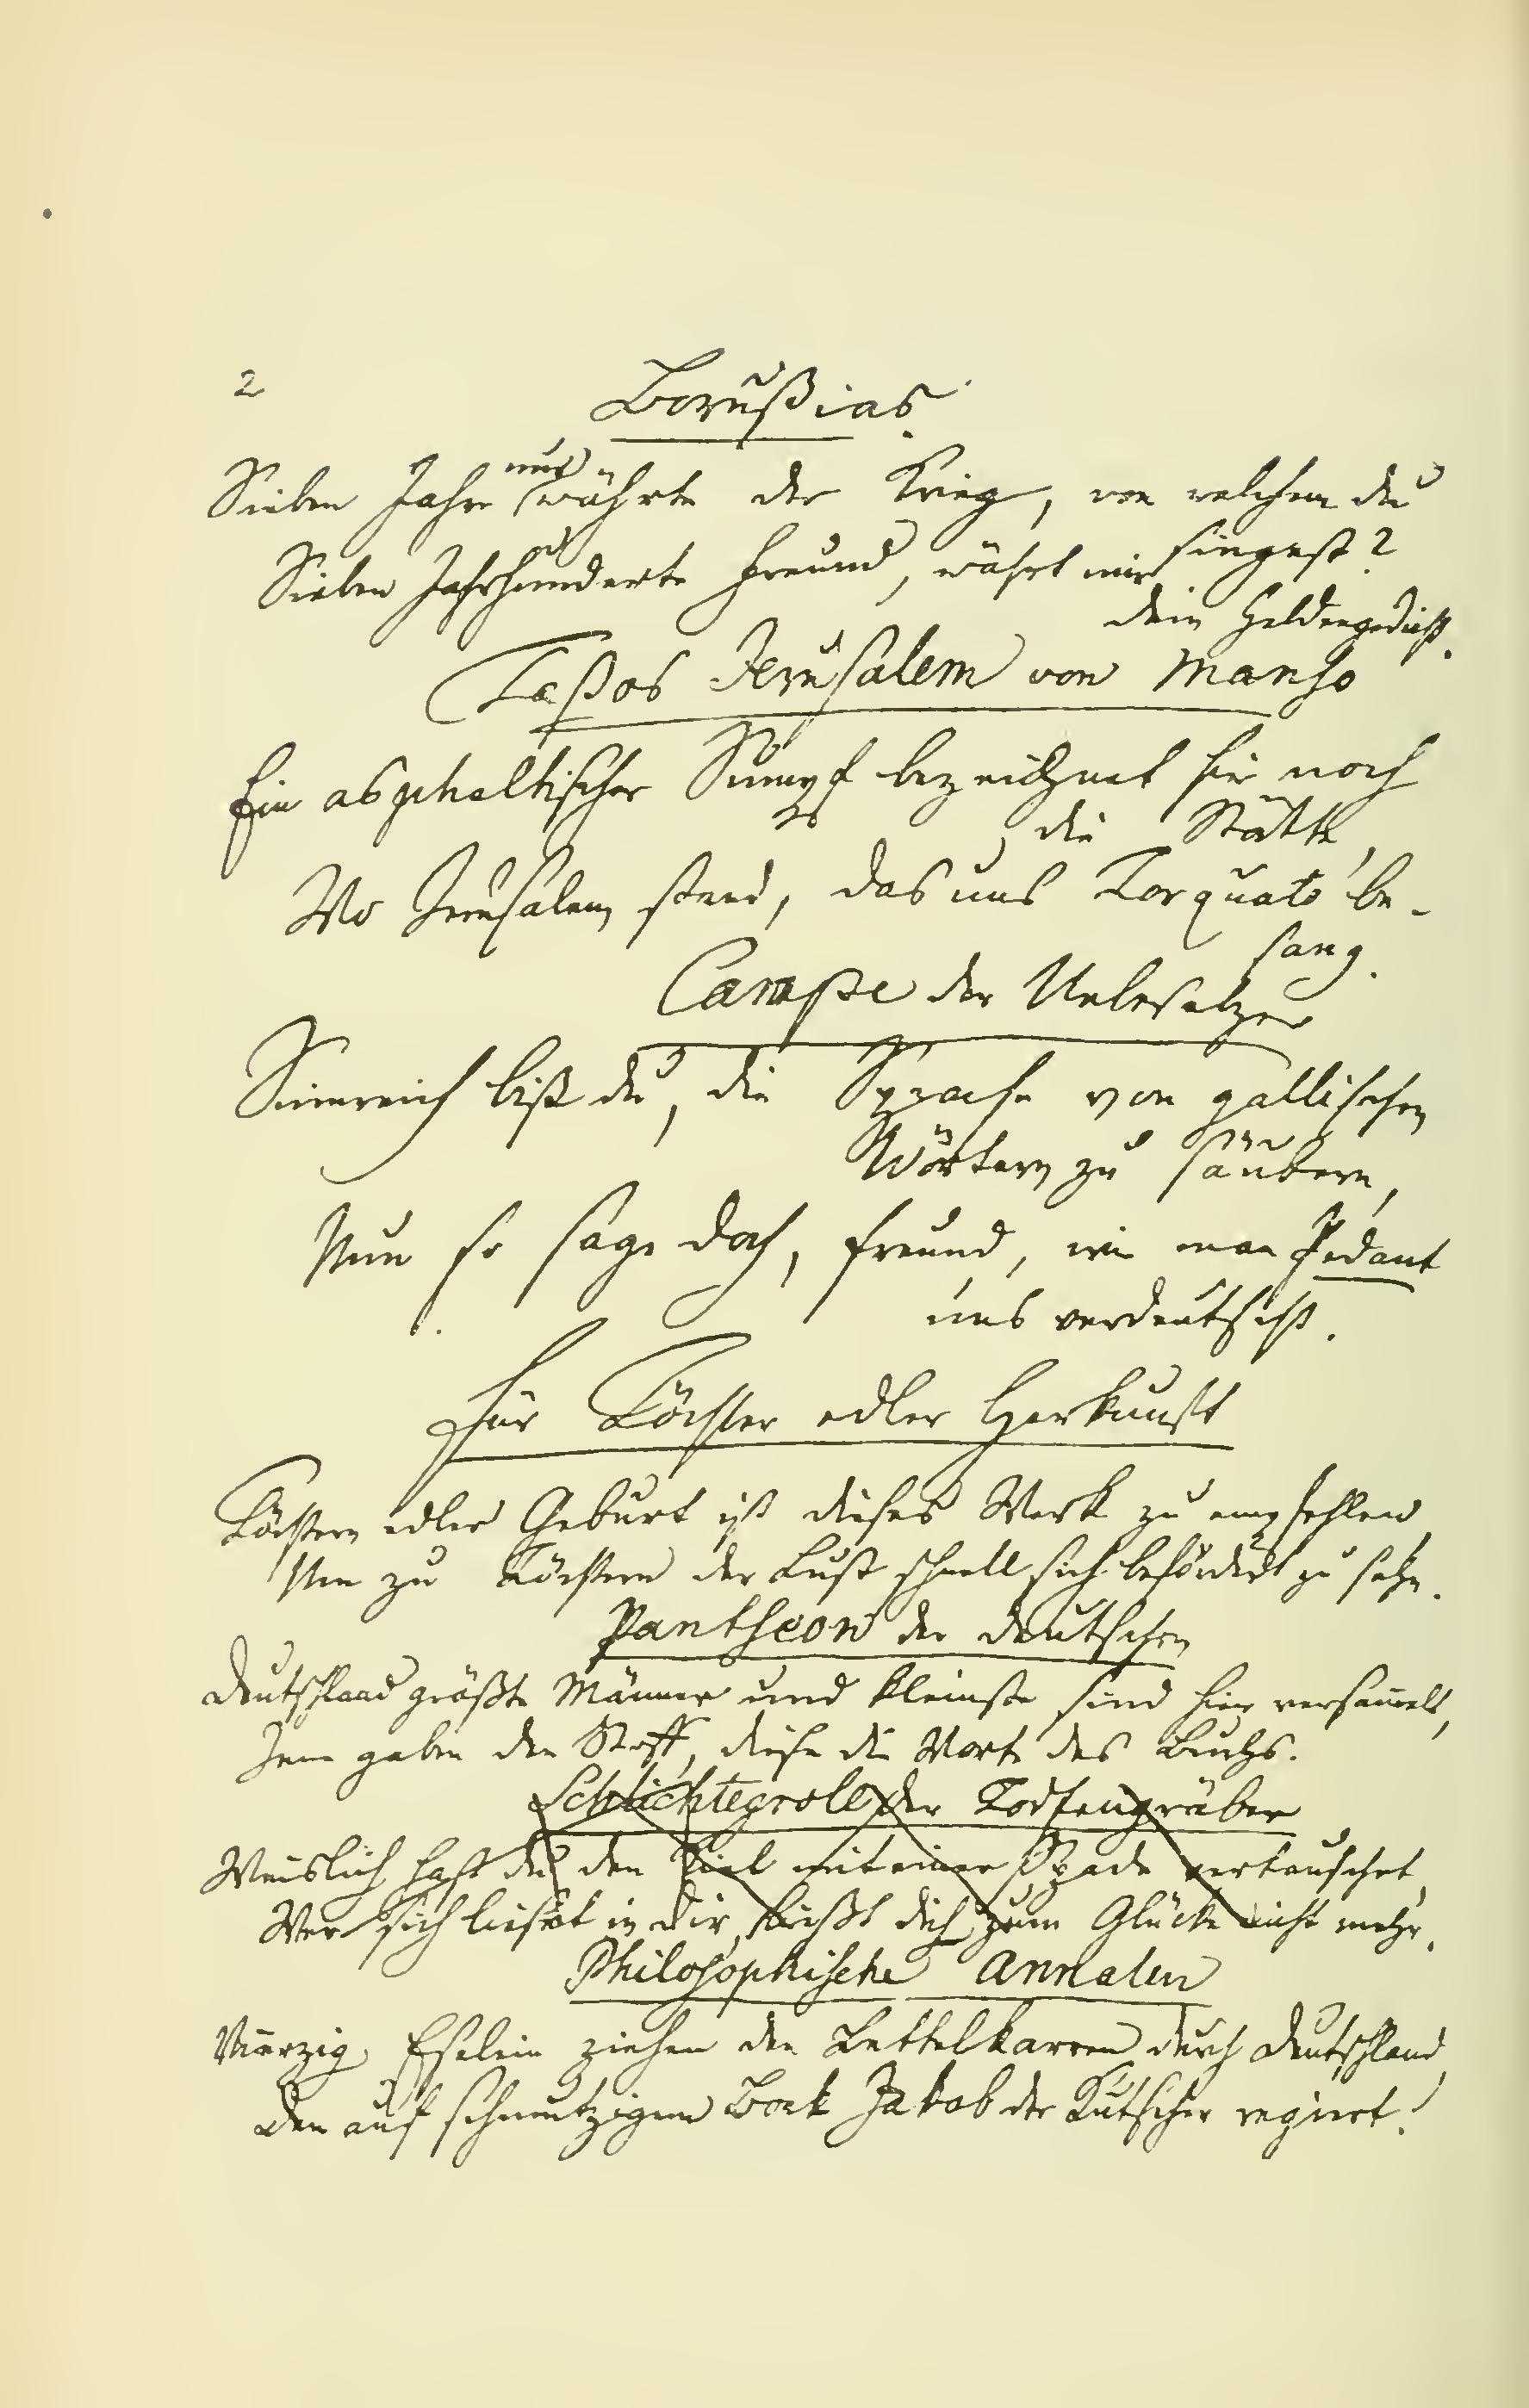 2
Borußias
nur
Sieben Jahre währte der Krieg, von welchem du
singest?
Sieben Jahrhunderte Freund, währt mir
dein Heldengedicht.
Taßos Jerusalem von Manso
Ein asphaltischer Sumpf bezeichnet hier noch
die Stätte,
Wo Jerusalem stand, das uns Torquato be-
sang.
Campe der Uebersetzer
Sinnreich bist du, die Sprache von gallischen
Wörtern zu säubern,
Nun so sage doch, Freund, wie man Pedant
uns verdeutscht.
Für Töchter edler Herkunft
Töchtern edler Geburt ist dieses Werk zu empfehlen,
Um zu Töchtern der Lust schnell sich befördert zu sehn.
Pantheon der deutschen
Deutschland größte Männer und kleinste sind hier versammelt,
Jene gaben den Stoff, diese die Worte des Buchs.
Schlichtegroll der Todtengräber
Weislich hast du den Kiel mit einer Spade vertauschet,
Wer sich lieset in dir, dich zum Glücke nicht mehr.
Philosophische Annalen
Vierzig Eselein ziehen den Bettelkarren durch Deutschland,
Den auf schmutzigem Bock Jakob der Kutscher regiert!